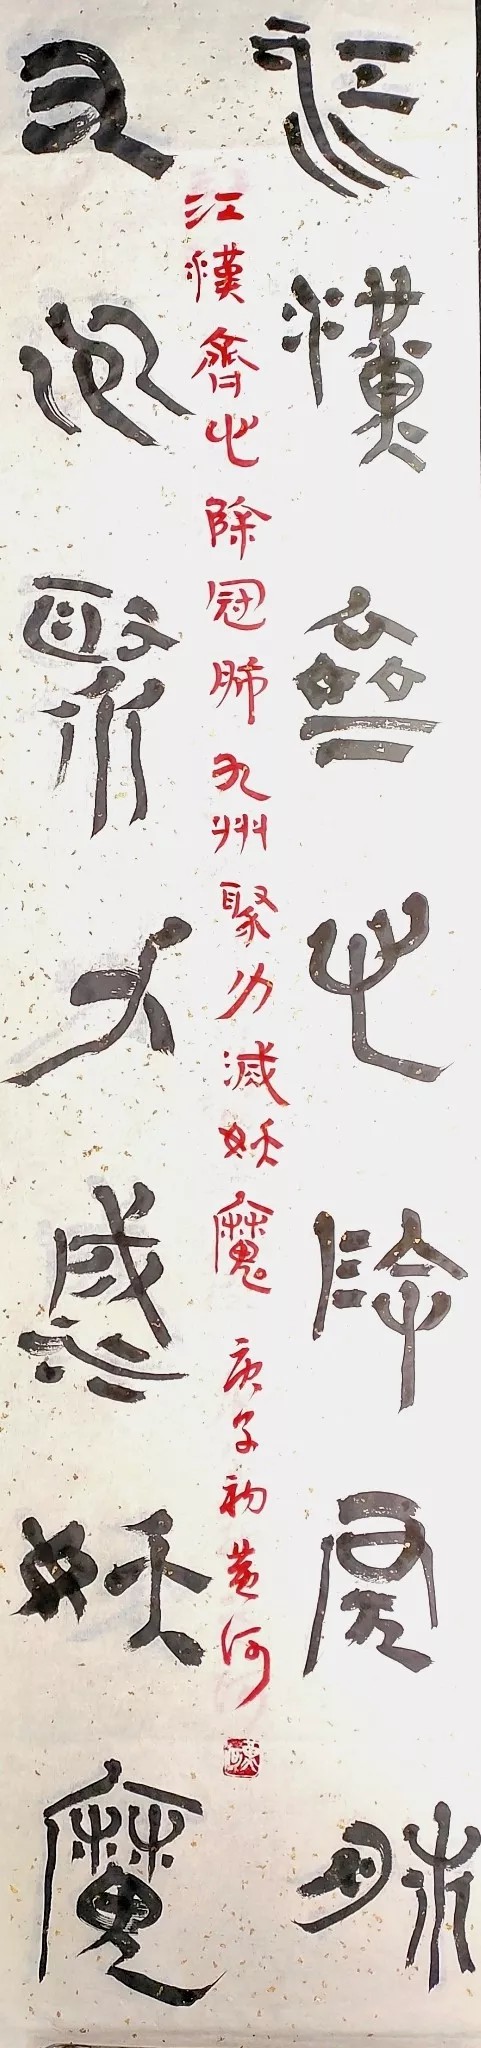 江漢齊心除冠肺
九州聚力滅妖魔
江漢齊心除冠肺九州聚力滅妖魔 庚子初黃河